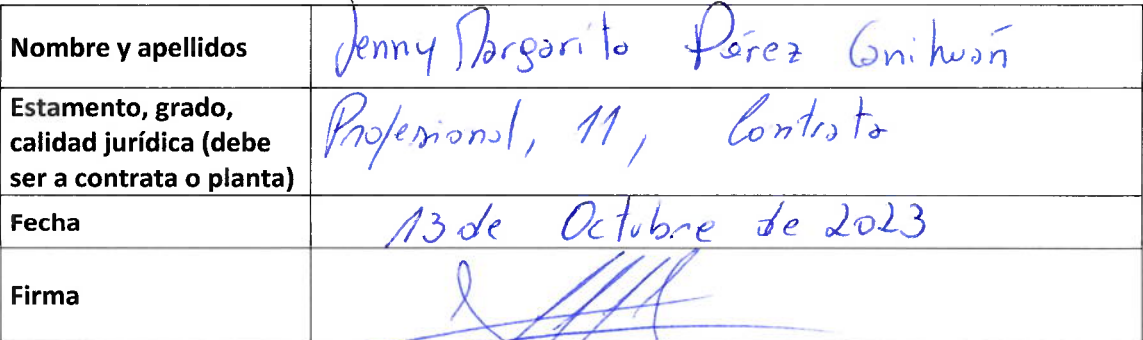 Nombre y apellidos Jenny Margarita Pérez Canihuán
Estamento, grado,
calidad jurídica (debe
ser a contrata o planta)
Profesional, 11, Contrata
Fecha 13 de Octubre de 2023
Firma